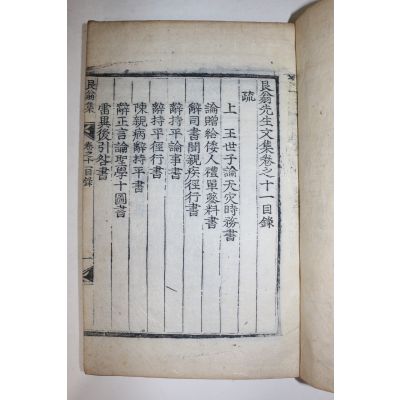 艮翁先生文集卷之十一目錄
疏
上 王世子論天灾時務書
論贈給倭人禮單蔘料書
辭司書聞親疾徑行書
辭持平論事書
辭持平徑行書
陳親病辭持平書
辭正言論聖學十圖書
雷異後引咎書
艮翁集 卷之十一目錄